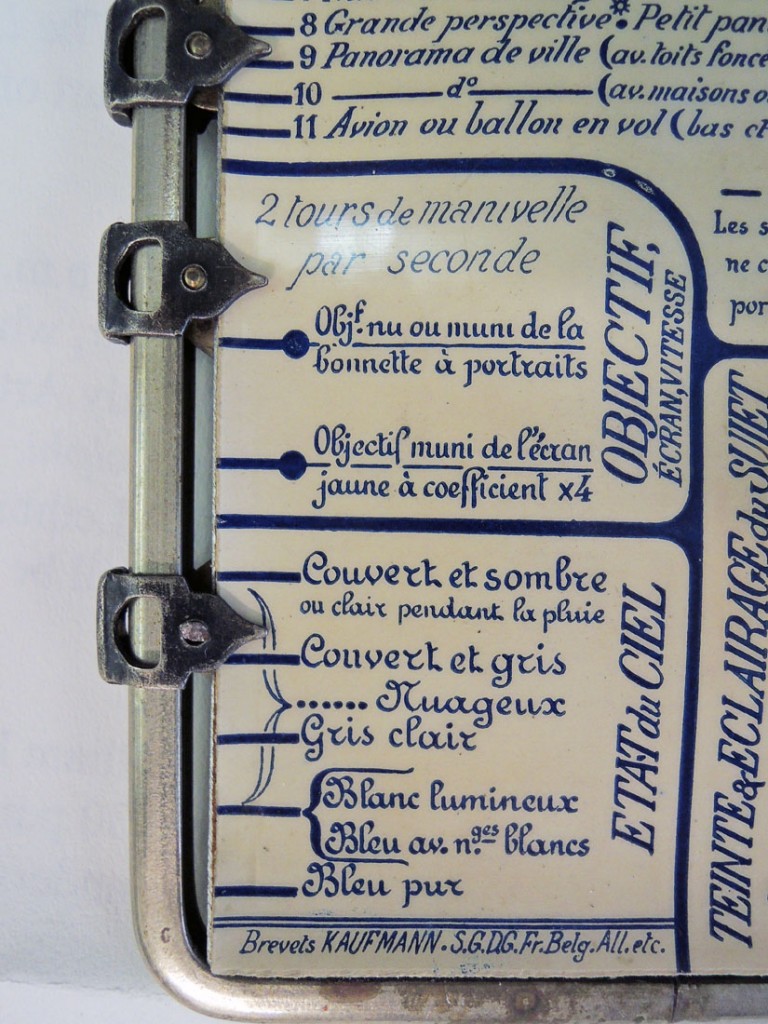 8 Grande perspective* Petit pan
9 Panorama de ville (av. toits fonce
10 — dº — (av. maisons o
11 Avion ou ballon en vol (bas
2 tours de manivelle
par seconde
Objf. nu ou muni de la
bonnette à portraits
Objectif muni de l'écran
jaune à coefficient x4
OBJECTIF,
ÉCRAN, VITESSE
Les s
ne c
por
Couvert et sombre
ou clair pendant la pluie
Couvert et gris
....... Nuageux
Gris clair
Blanc lumineux
Bleu av. n.ges blancs
Bleu pur
ETAT du CIEL
TEINTE & ECLAIRAGE du SUJET
Brevets KAUFMANN. S.G.D.G. Fr. Belg. All. etc.